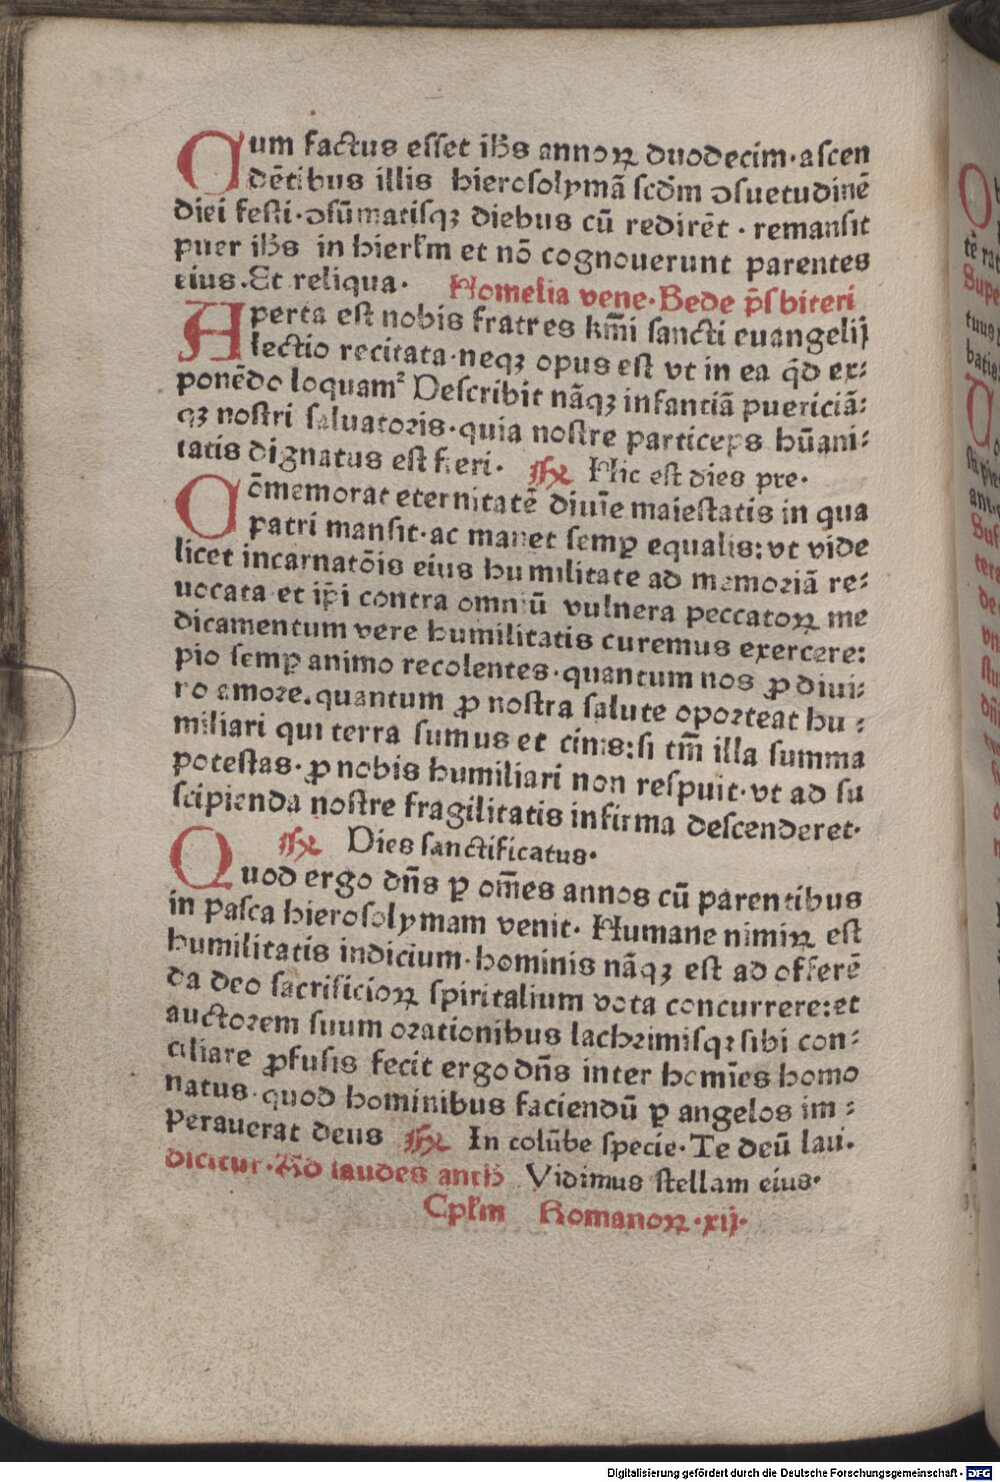 Cum factus esset ihs̄ annoꝝ duodecim·ascen
dētibus illis hierosolymā scd̄m ↄsuetudinē
diei festi·ↄsūmatisqꝫ diebus cū redirēt·remansit
puer ihs̄ in hierl̄m et nō cognouerunt parentes
eius·Et reliqua· Homelia vene·Bede pṡbiteri
Aperta est nobis fratres km̄i sancti euangelij
lectio recitata·neqꝫ opus est vt in ea qd̄ ex:
ponēdo loquam² Describit nāqꝫ infantiā puericiā:
qꝫ nostri saluatoris·quia nostre particeps hūani:
tatis dignatus est fieri· Hic est dies pre·
Cōmemorat eternitatē diuīe maiestatis in qua
patri mansit·ac manet semꝑ equalis:vt vide
licet incarnatōis eius humilitate ad memoriā re:
uocata et ip̄i contra omniū vulnera peccatoꝝ me
dicamentum vere humilitatis curemus exercere:
pio semꝑ animo recolentes·quantum nos ꝓ diui:
no amore.quantum ꝓ nostra salute oporteat hu:
miliari qui terra sumus et cinis:si tm̄ illa summa
potestas·ꝓ nobis humiliari non respuit·vt ad su
scipienda nostre fragilitatis infirma descenderet·
Dies sanctificatus·
Quod ergo dn̄s ꝑ om̄es annos cū parentibus
in pasca hierosolymam venit·Humane nimiꝝ est
humilitatis indicium·hominis nāqꝫ est ad offerē
da deo sacrificioꝝ spiritalium vota concurrere:et
auctorem suum orationibus lachrimisqꝫ sibi con:
ciliare ꝓfusis fecit ergo dn̄s inter homīes homo
natus·quod hominibus faciendū ꝑ angelos im:
perauerat deus In colūbe specie·Te deū lau·
dicitur·Ad laudes anth̄ Vidimus stellam eius·
Cpl̄m Romanoꝝ·xij·
Digitalisierung gefördert durch die Deutsche Forschungsgemeinschaft - DFG